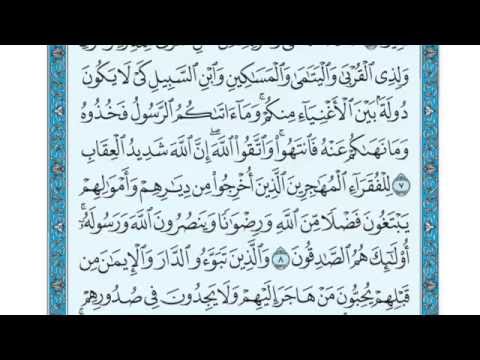 وَلِذِي ٱلۡقُرۡبَىٰ وَٱلۡيَتَٰمَىٰ وَٱلۡمَسَٰكِينِ وَٱبۡنِ ٱلسَّبِيلِ كَيۡ لَا يَكُونَ
دُولَةَۢ بَيۡنَ ٱلۡأَغۡنِيَآءِ مِنكُمۡۚ وَمَآ ءَاتَىٰكُمُ ٱلرَّسُولُ فَخُذُوهُ
وَمَا نَهَىٰكُمۡ عَنۡهُ فَٱنتَهُواْۚ وَٱتَّقُواْ ٱللَّهَۖ إِنَّ ٱللَّهَ شَدِيدُ ٱلۡعِقَابِ
٧ لِلۡفُقَرَآءِ ٱلۡمُهَٰجِرِينَ ٱلَّذِينَ أُخۡرِجُواْ مِن دِيَٰرِهِمۡ وَأَمۡوَٰلِهِمۡ
يَبۡتَغُونَ فَضۡلٗا مِّنَ ٱللَّهِ وَرِضۡوَٰنٗا وَيَنصُرُونَ ٱللَّهَ وَرَسُولَهُۥٓۚ
أُوْلَٰٓئِكَ هُمُ ٱلصَّٰدِقُونَ ٨ وَٱلَّذِينَ تَبَوَّءُو ٱلدَّارَ وَٱلۡإِيمَٰنَ مِن
قَبۡلِهِمۡ يُحِبُّونَ مَنۡ هَاجَرَ إِلَيۡهِمۡ وَلَا يَجِدُونَ فِي صُدُورِهِمۡ